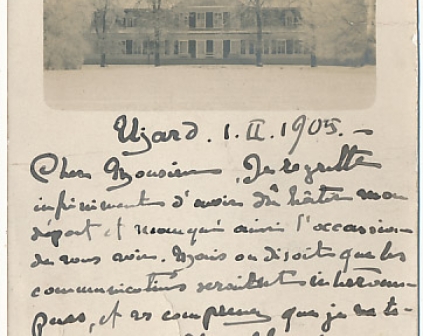 Ujard. 1. II. 1905. —
Cher Monsieur, Je regrette
infiniment d'avoir dû hâter mon
départ et manqué ainsi l'occasion
de vous voir. Mais on disait que les
communications seraient interrom-
pues, et vs comprenez que je ne